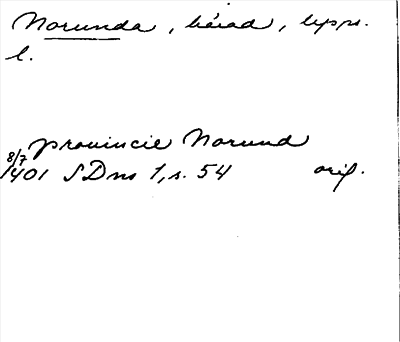 Norunda, härad, Upps.
l.
provincie Norund
8/7
1401 SDns 1, s. 54 orig.